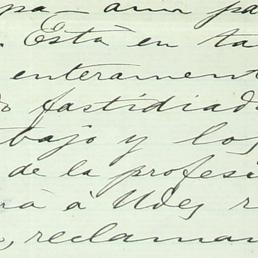 pa- aun pa
. Está en ta
enterament
o fastidiad
bajo y los
de la profesi
rá á Udes r
, reclaman